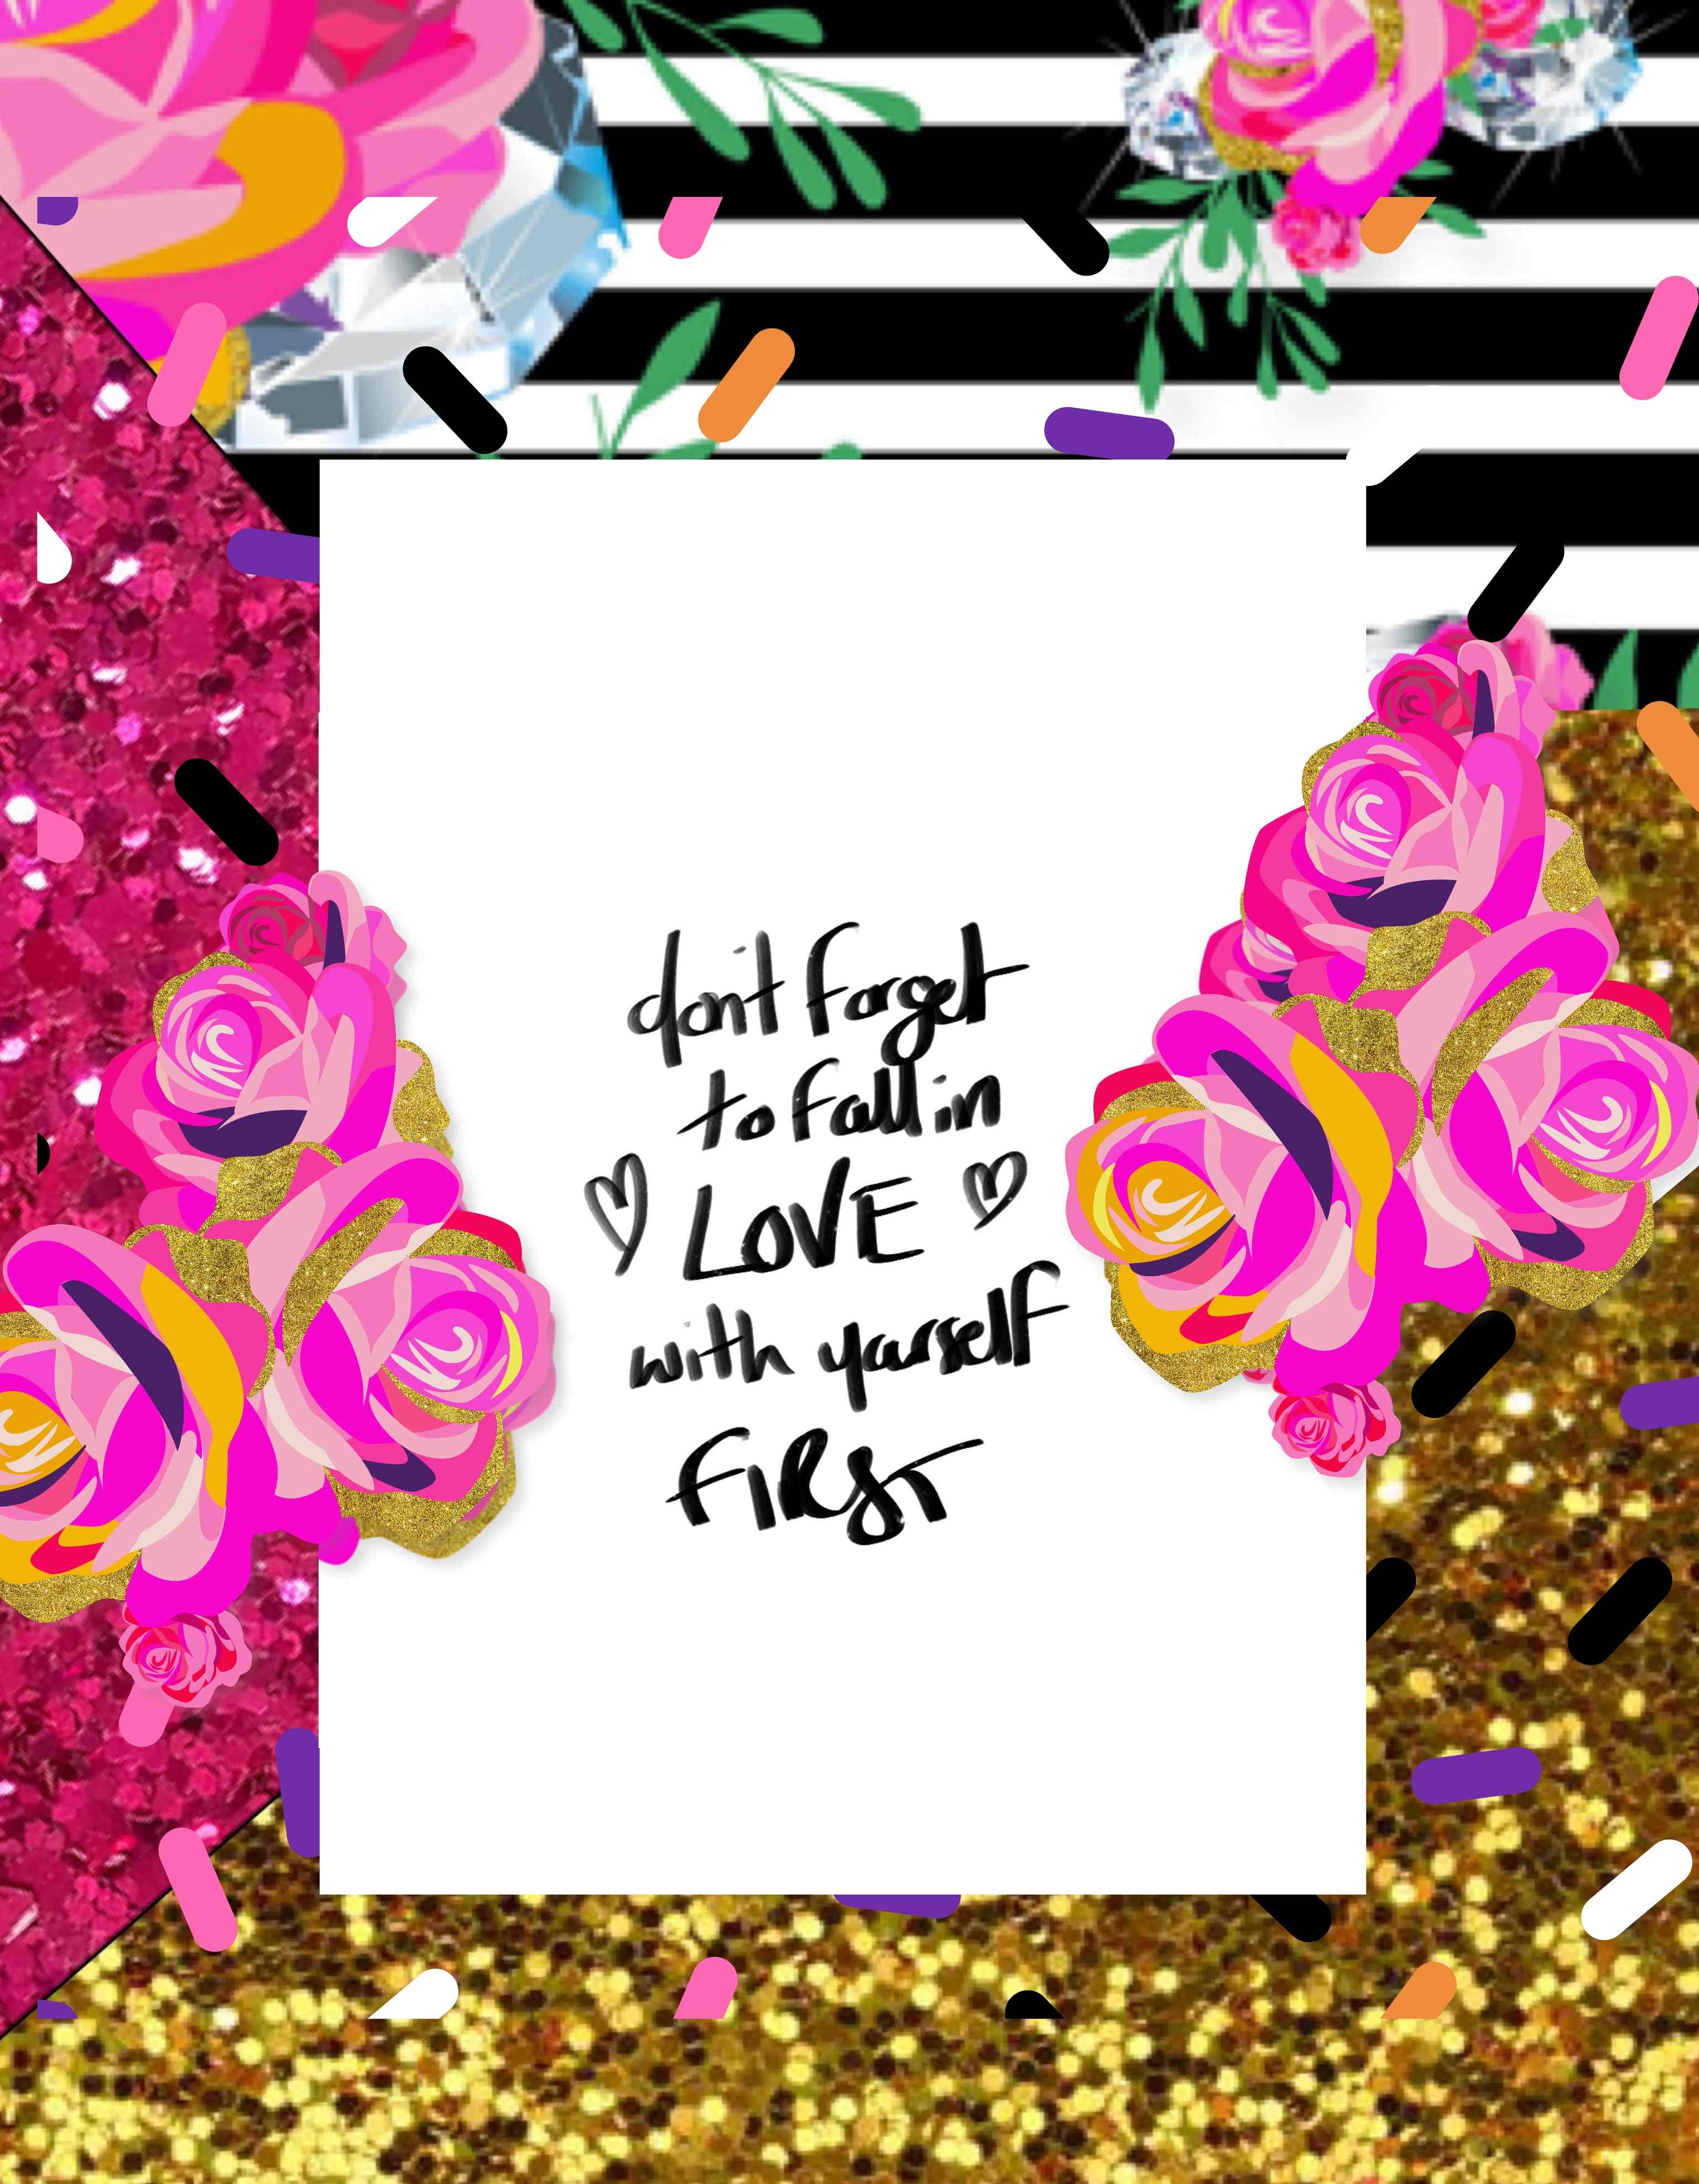 don't forget
to fall in
LOVE
with yourself
FIRST